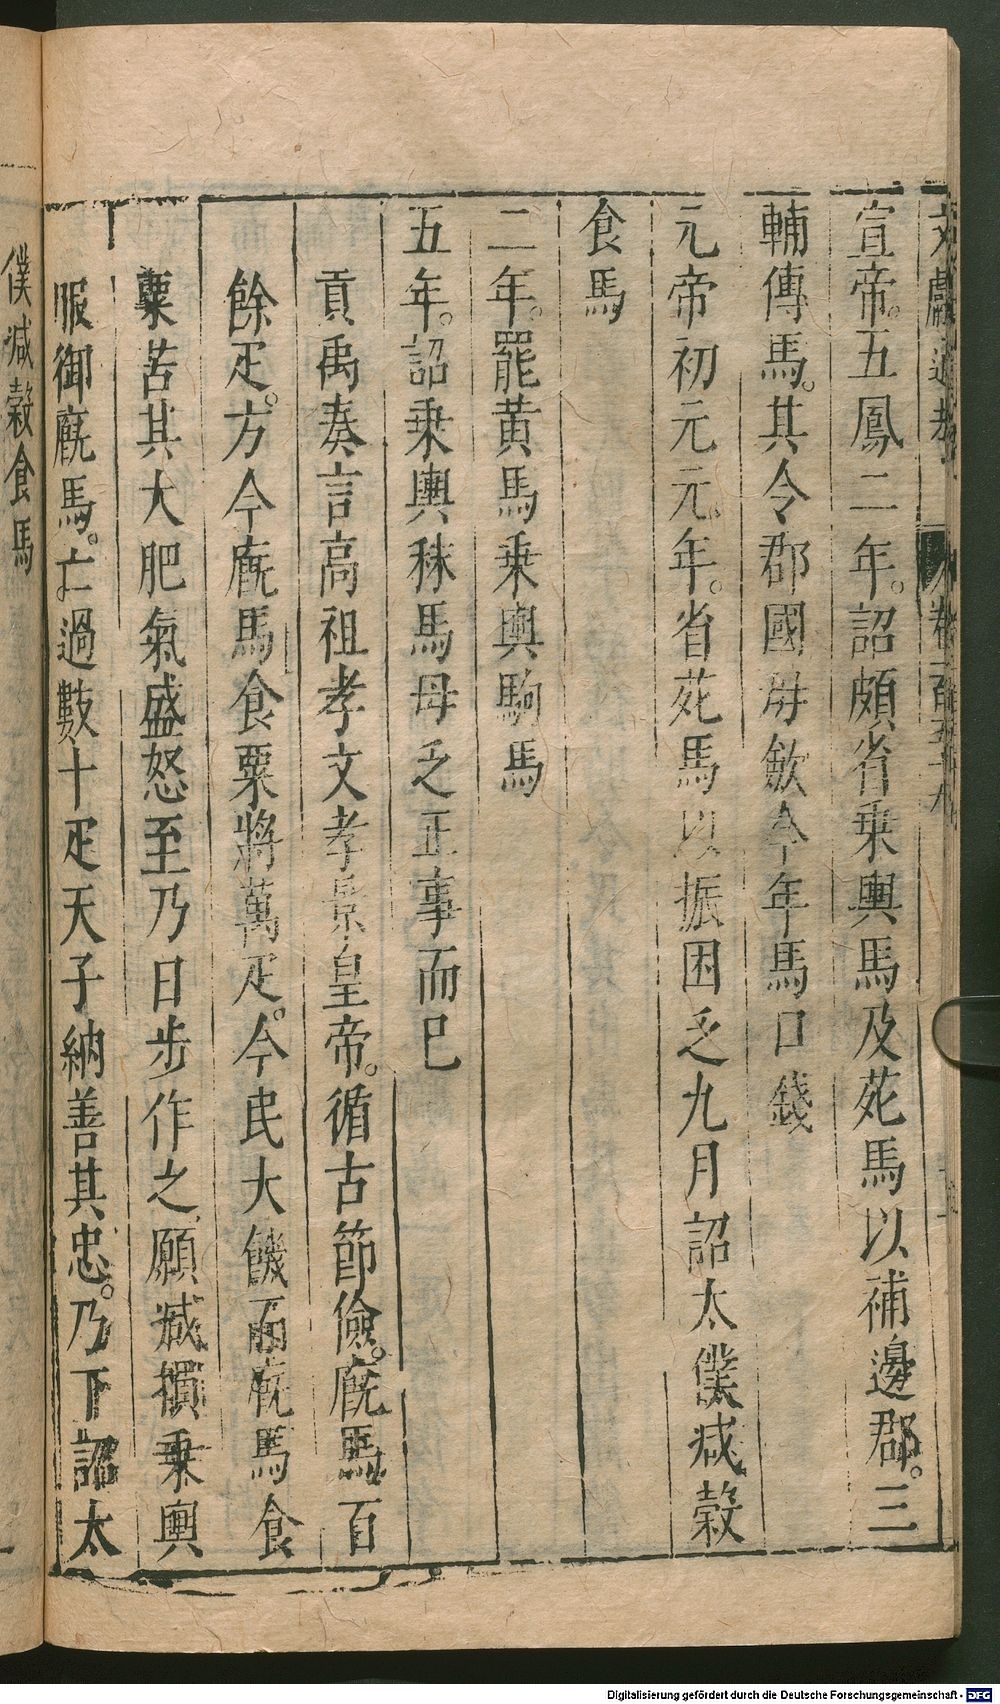 文獻通考 卷一百五十九
宣帝。五鳳二年。詔頗省乗輿馬及苑馬以補邊郡。三
輔傳馬。其令郡國毋斂今年馬口錢
元帝初元元年。省苑馬以振困乏九月詔太僕减穀
食馬
二年。罷黄馬乗輿駒馬
五年。詔乗輿秣馬毋乏正事而已
貢禹奏言高祖孝文孝景皇帝。循古節儉。廐馬百
餘疋。方今廐馬食粟將萬疋。今民大饑而廐馬食
粟苦其大肥氣盛怒至乃日步作之願减損乗輿
服御廐馬。亡過數十疋天子納善其忠。乃下詔太
僕减穀食馬
Digitalisierung gefördert durch die Deutsche Forschungsgemeinschaft - DFG